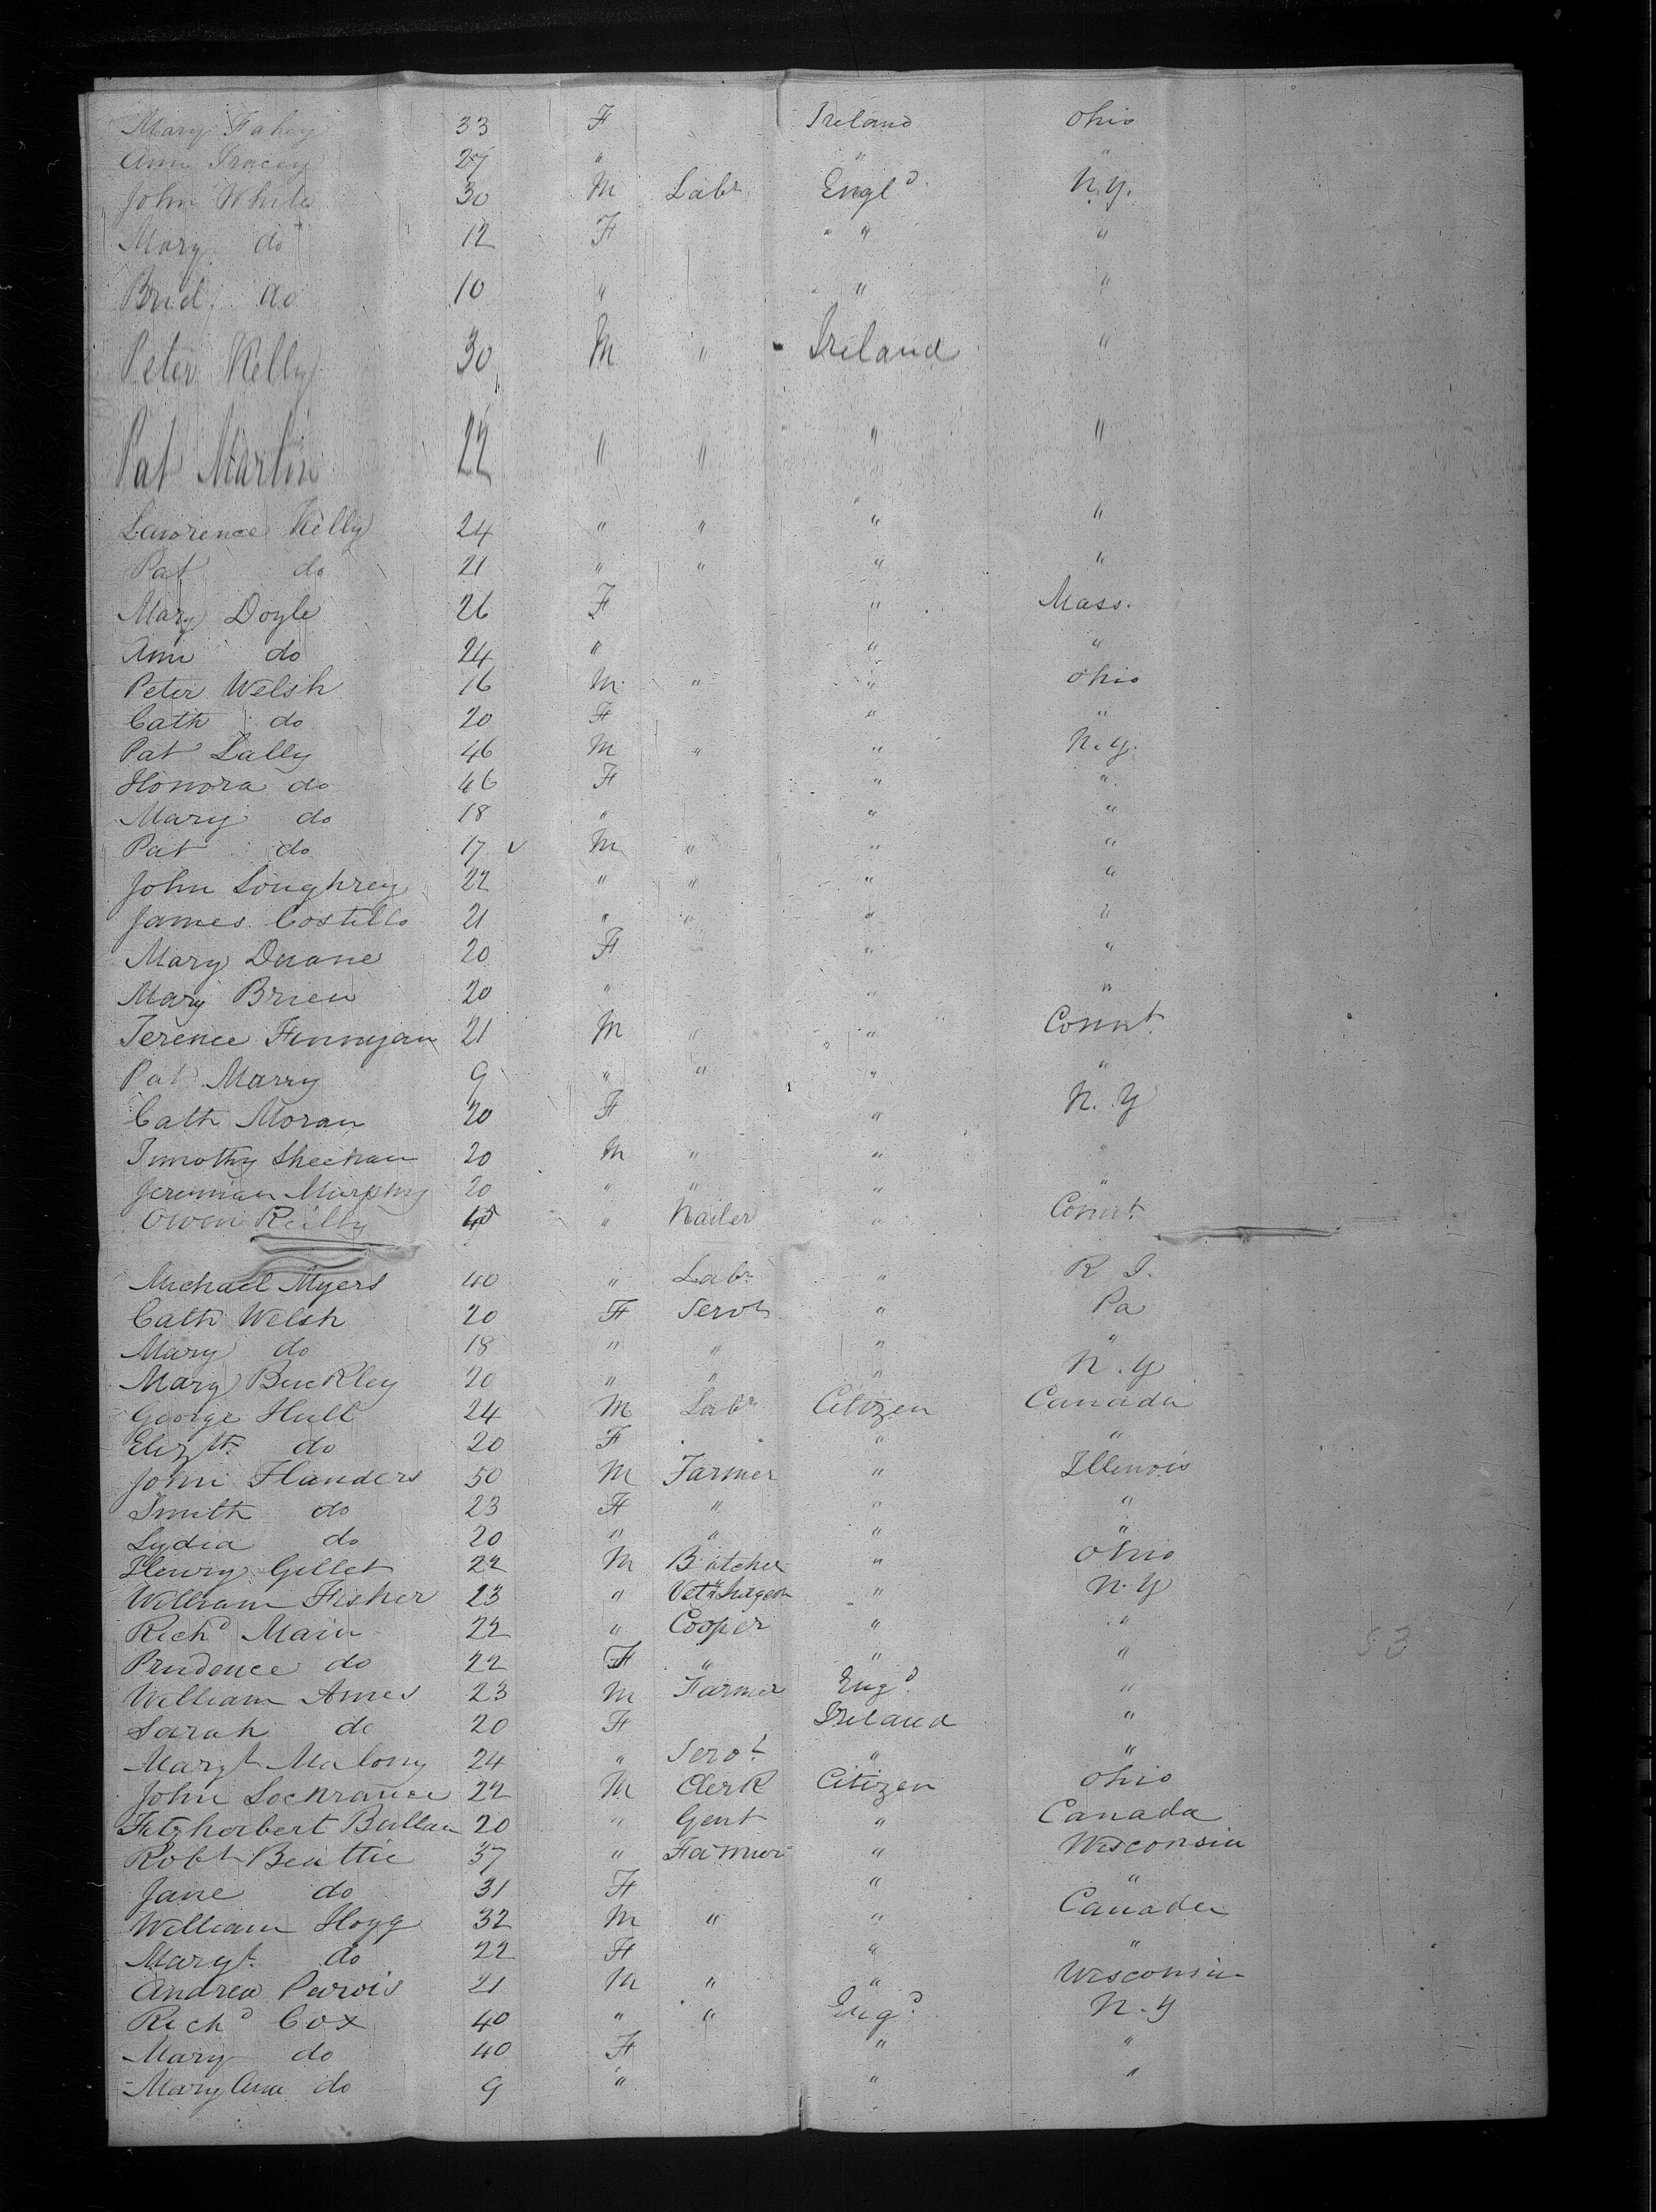 Mary Fahey 33 F Ireland Ohio
Ann Tracey 27 " " "
John White 30 M Labr Engld N.Y.
Mary do 12 F " "
Brid. do 10 " " "
Peter Kelly 30 M " Ireland "
Pat Martin 22 " " " "
Lawrence Kelly 24 " " " "
Pat do 21 " " " "
Mary Doyle 26 F " Mass.
Ann do 24 " " "
Peter Welsh 16 M " " Ohio
Cath do 20 F " "
Pat Lally 46 M " " N.Y.
Honora do 46 F " "
Mary do 18 " " "
Pat do 17 M " " "
John Loughrey 22 " " " "
James Costello 21 " " " "
Mary Duane 20 F " "
Mary Brien 20 " " "
Terence Finnigan 21 M " " Connt.
Pat Marry 9 " " " "
Cath Moran 20 F " N.Y
Timothy Sheehan 20 M " " "
Jeremiah Murphy 20 " " " "
Owen Reilly " Nailer " Connt.
Michael Myers 40 " Labr " R I.
Cath Welsh 20 F Servt " Pa
Mary do 18 " " " "
Mary Buckley 20 " " " N.Y
George Hull 24 M Labr Citizen Canada
Elizth do 20 F " "
John Flanders 50 M Farmer " Illinois
Smith do 23 F " " "
Lydia do 20 " " " "
Henry Gillet 22 M Butcher " Ohio
William Fisher 23 " Vety Surgeon " N.Y
Richd Main 22 " Cooper " "
Prudence do 22 F " " "
William Ames 23 M Farmer Engd. "
Sarah do 20 F Ireland "
Margt Malony 24 " Servt " "
John Lockrance 22 M Clerk Citizen Ohio
Fitzherbert Bullan 20 " Gent " Canada
Robt Beattie 37 " Farmer " Wisconsin
Jane do 31 F " "
William Hogg 32 M " " Canada
Margt. do 22 F " "
Andrew Purvis 21 M " " Wisconsin
Richd Cox 40 " " Engd. N.Y
Mary do 40 F " "
Mary Ann do 9 " " "
53